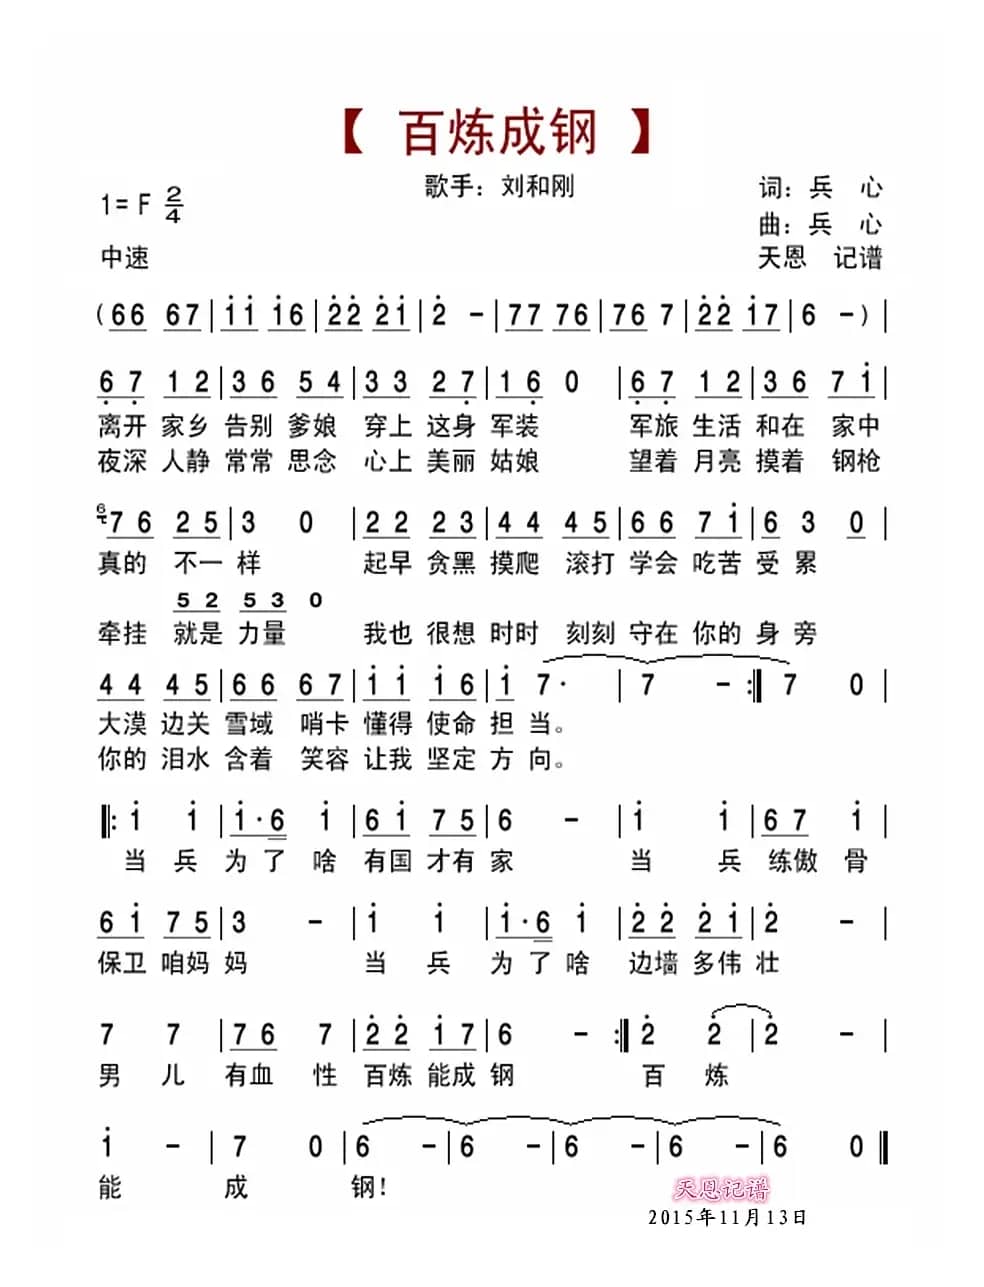 【 百炼成钢 】
歌手：刘和刚
词：兵 心
1= F 2/4
曲：兵 心
中速
天恩 记谱
(66 67|i̇i̇ i̇6|2̇2̇ 2̇i̇|2̇ -|77 76|76 7|2̇2̇ i̇7|6 -)|
6̣ 7̣ 1 2|3 6 5 4|3 3 2 7̣|1 6̣ 0|6̣ 7̣ 1 2|3 6 7 i̇|
离开 家乡 告别 爹娘 穿上 这身 军装 军旅 生活 和在 家中
夜深 人静 常常 思念 心上 美丽 姑娘 望着 月亮 摸着 钢枪
6 7 6 2 5|3 0|2 2 2 3|4 4 4 5|6 6 7 i̇|6 3 0|
真的 不一 样 起早 贪黑 摸爬 滚打 学会 吃苦 受 累
5 2 5 3 0
牵挂 就是 力量 我也 很想 时时 刻刻 守在 你的 身 旁
4 4 4 5|6 6 6 7|i̇ i̇ i̇ 6|i̇ 7·|7 -:|7 0|
大漠 边关 雪域 哨卡 懂得 使命 担 当。
你的 泪水 含着 笑容 让我 坚定 方 向。
|:i̇ i̇|i̇·6 i̇|6 i̇ 7 5|6 -|i̇ i̇|6 7 i̇|
当 兵 为了 啥 有国 才有 家 当 兵 练傲 骨
6 i̇ 7 5|3 -|i̇ i̇|i̇·6 i̇|2̇ 2̇ 2̇ i̇|2̇ -|
保卫 咱妈 妈 当 兵 为了 啥 边墙 多伟 壮
7 7|7 6 7|2̇ 2̇ i̇ 7|6 -:|2̇ 2̇|2̇ -|
男 儿 有血 性 百炼 能成 钢 百 炼
i̇ -|7 0|6 -|6 -|6 -|6 -|6 0‖
能 成 钢！
天恩记谱
2015年11月13日